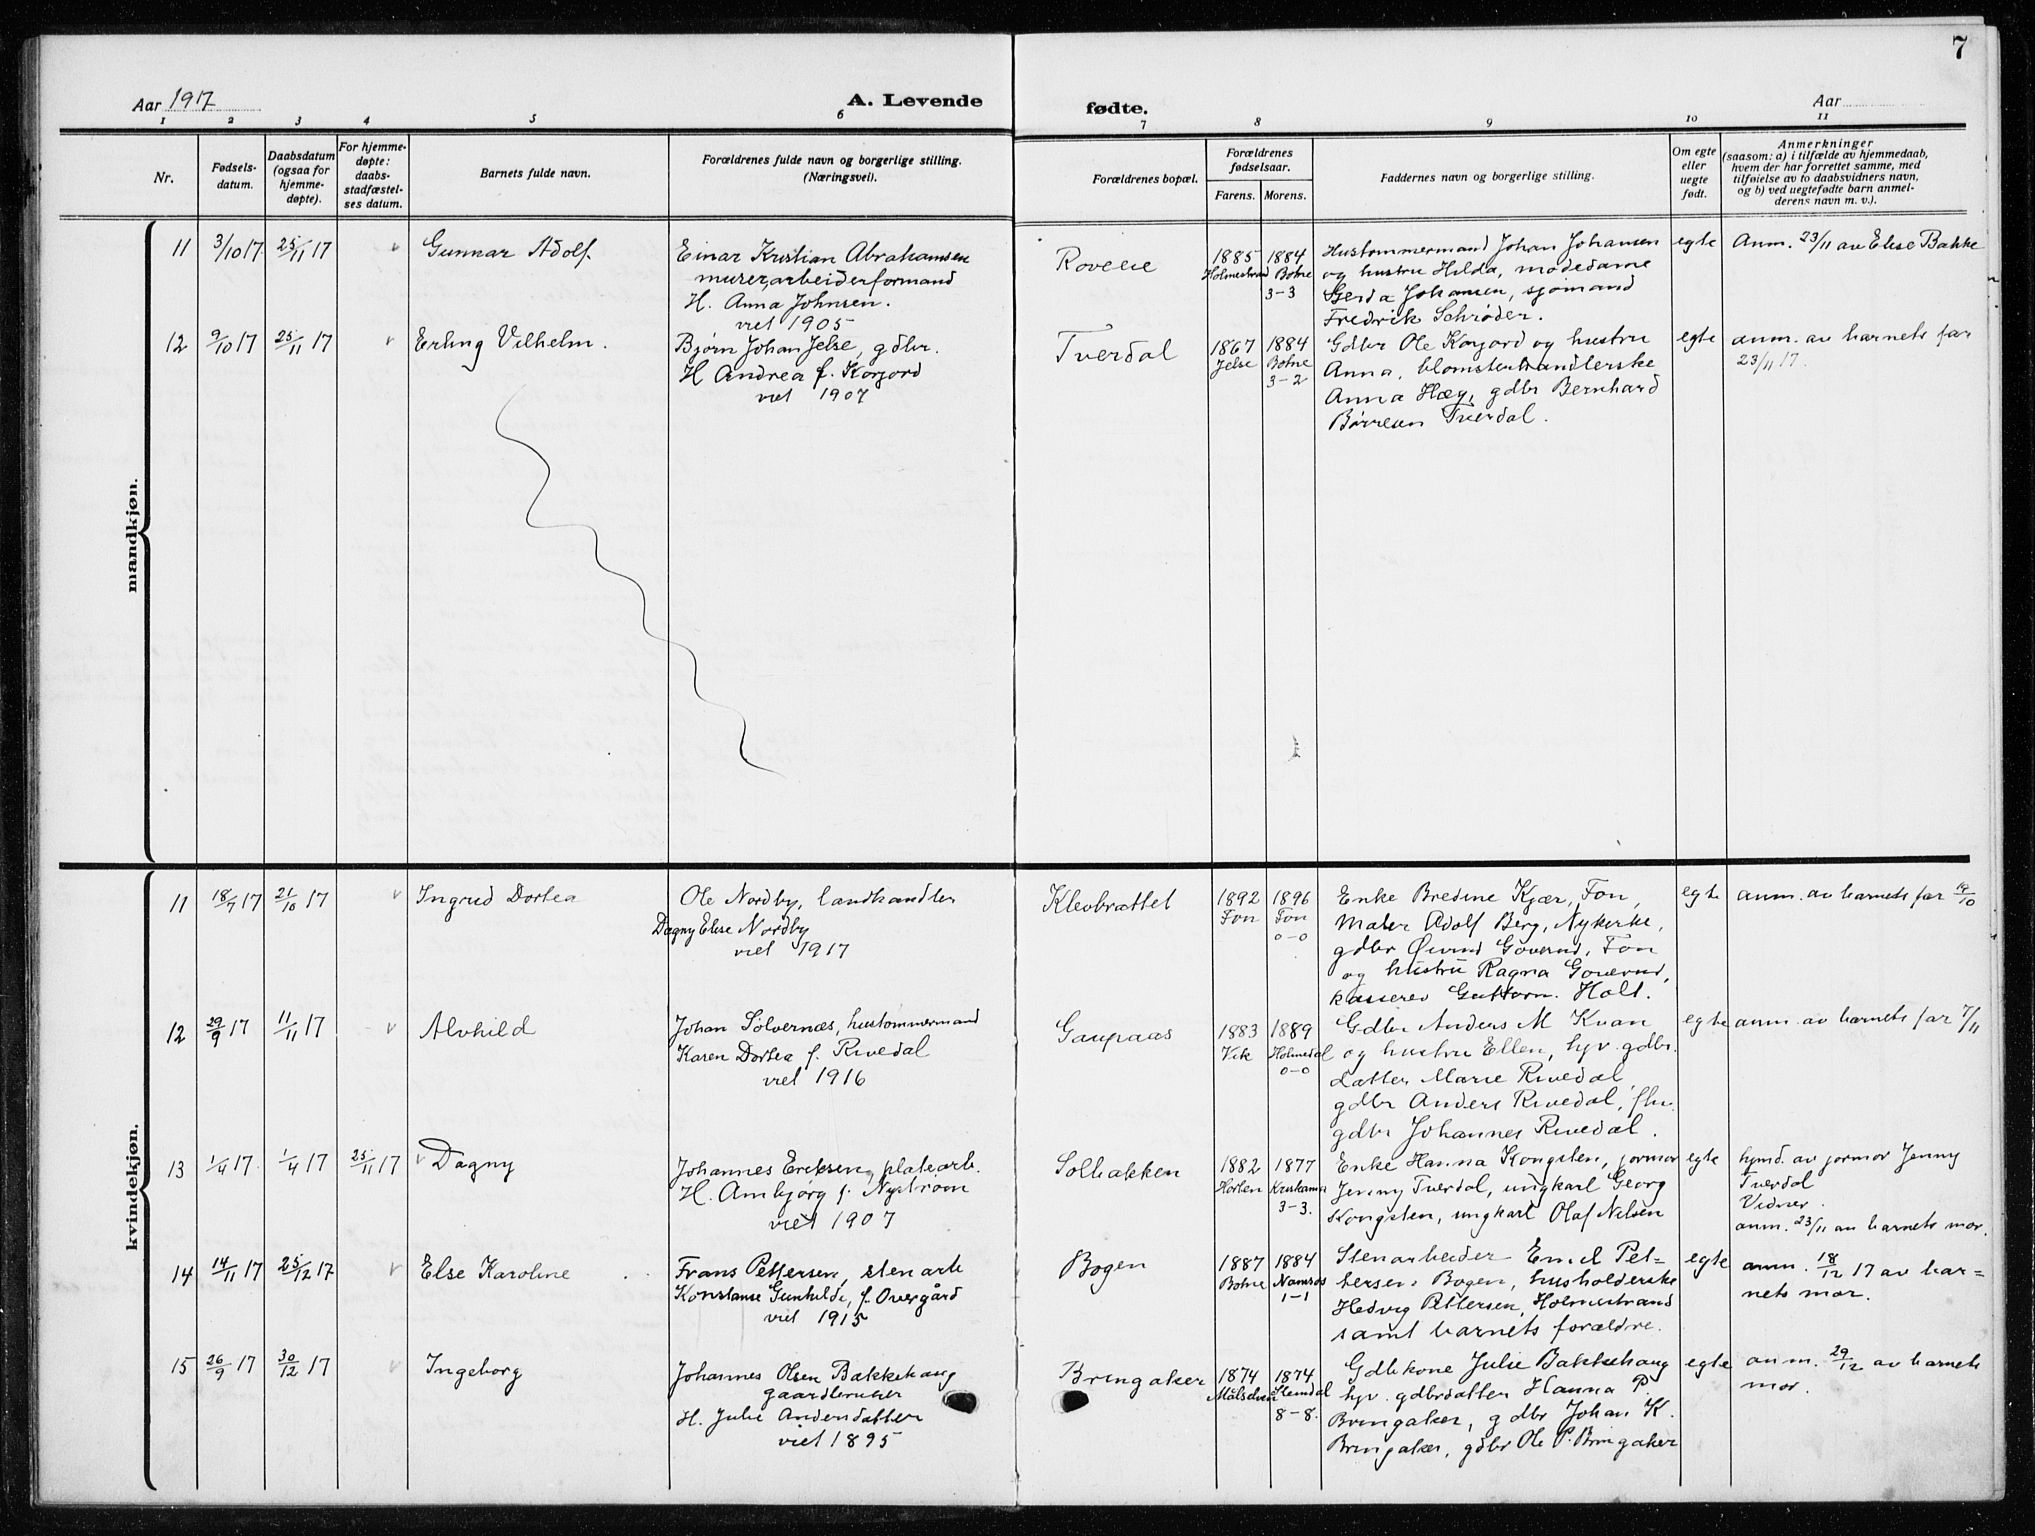 7
Aar 1917
A. Levende
fødte.
Aar
1 2 3 4 5 6 7 8 9 10 11
Nr.
Fødsels-
datum.
Daabsdatum
(ogsaa for
hjemme-
døpte).
For hjemme-
døpte:
daabs-
stadfæstel-
ses datum.
Barnets fulde navn.
Forældrenes fulde navn og borgerlige stilling.
(Næringsvei).
Forældrenes bopæl.
Forældrenes
fødselsaar.
Farens. Morens.
Faddernes navn og borgerlige stilling.
Om egte
eller
uegte
født.
Anmerkninger
(saasom: a) i tilfælde av hjemmedaab,
hvem der har forrettet samme, med
tilføielse av to daabsvidners navn,
og b) ved uegtefødte barn anmel-
derens navn m. v.).
mandkjøn.
11 3/10 17 25/11 17 v Gunnar Adolf
Einar Kristian Abrahamsen
murer, arbeiderformand
H. Anna Johnsen.
viet 1905
Roveie
1885 1884
Holmestrand Botne
3-3
Hustømmermand Johan Johansen
og hustru Hilda, motedame
Gerda Johansen, sjømand
Fredrik Schrøder.
egte
Anm. 23/11 av Elise Bakke
12 9/10 17 25/11 17 v Erling Vilhelm.
Bjørn Johan Jelse, gdbr.
H Andrea f. Korjord
viet 1907
Tverdal
1867 1884
Jelse Botne
3-2
Gdbr Ole Korjord og hustru
Anna, blomsterhandlerske
Anna Hæg, gdbr Bernhard
Børresen Tverdal.
egte
anm. av barnets far
23/11 17.
kvindekjøn.
11 18/7 17 21/10 17 v Ingrid Dortea
Ole Nordby, landhandler
Dagny Elise Nordby
viet 1917
Klevbrættet
1892 1896
Fon Fon
0-0
Enke Bredine Kjær, Fon,
Maler Adolf Berg, Nykirke,
gdbr Øivind Goverud, Fon
og hustru Ragna Goverud,
kasserer Guttorm Holt.
egte
anm. av barnets far 19/10
12 29/9 17 11/11 17 v Alvhild
Johan Solvernæs, hustømmermand
Karen Dortea f. Rivedal
viet 1916
Gaupaas
1883 1889
Vik Holmedal
0-0
Gdbr Anders M Kvan
og hustru Ellen, hjv. gdbr.
datter Marie Rivedal
gdbr Anders Rivedal, fhv.
gdbr Johannes Rivedal.
egte
anm. av barnets far 7/11
13 1/4 17 1/4 17 25/11 17 v Dagny
Johannes Eriksen, platearb.
H. Ambjørg f. Nystrøm
viet 1907
Solbakken
1882 1877
Horten Kristiania
3-3.
Enke Hanna Kongsten, jormor
Jenny Tverdal, ungkarl Georg
Kongsten, ungkarl Olaf Nilsen
egte
hjmd. av jormor Jenny
Tverdal
Vidner.
anm. 23/11 av barnets mor.
14 14/11 17 25/12 17 v Else Karoline
Frans Pettersen, stenarb
Konstanse Gunhilde, f. Overgård
viet 1915
Bogen
1887 1884
Botne Namsos
1-1
Stenarbeider Emil Pet-
tersen, Bogen, husholderske
Hedvig Pettersen, Holmestrand
samt barnets forældre.
egte
anm. 18/12 17 av bar=
nets mor.
15 26/9 17 30/12 17 v Ingeborg
Johannes Olsen Bakkehaug
gaardbruker
H. Julie Andersdatter
viet 1895
Bringaker
1874 1874
Målselven Stemdal
8-8.
Gdbkone Julie Bakkehaug
hjv. gdbrdatter Hanna P.
Bringaker, gdbr Johan K.
Bringaker, gdbr Ole P. Bringaker
egte
anm. 29/12 av barnets
mor.